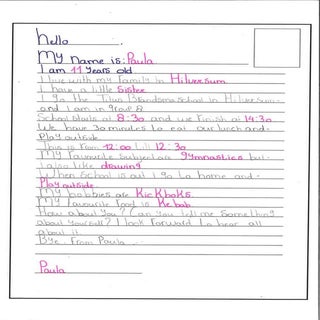 Hello
My Name is: Paula
I am 11 Years old
I live with my family in Hilversum
I have a little Sister
I go the Titus Brandsmaschool in Hilversum.
and I am in group 8
School starts at 8:30 and we finish at 14:30
We have 30 minutes to eat our lunch and
Play outside
This is from 12:00 till 12:30
My favourite Subject are gymnastics but
I also like drawing
When School is out I go to home and
Play outside
My hobbies are Kickboks
My favourite food is Kebab
How about you? Can you tell me Something
about yourself? I look forward to hear all
about it
Bye. From Paula
Paula